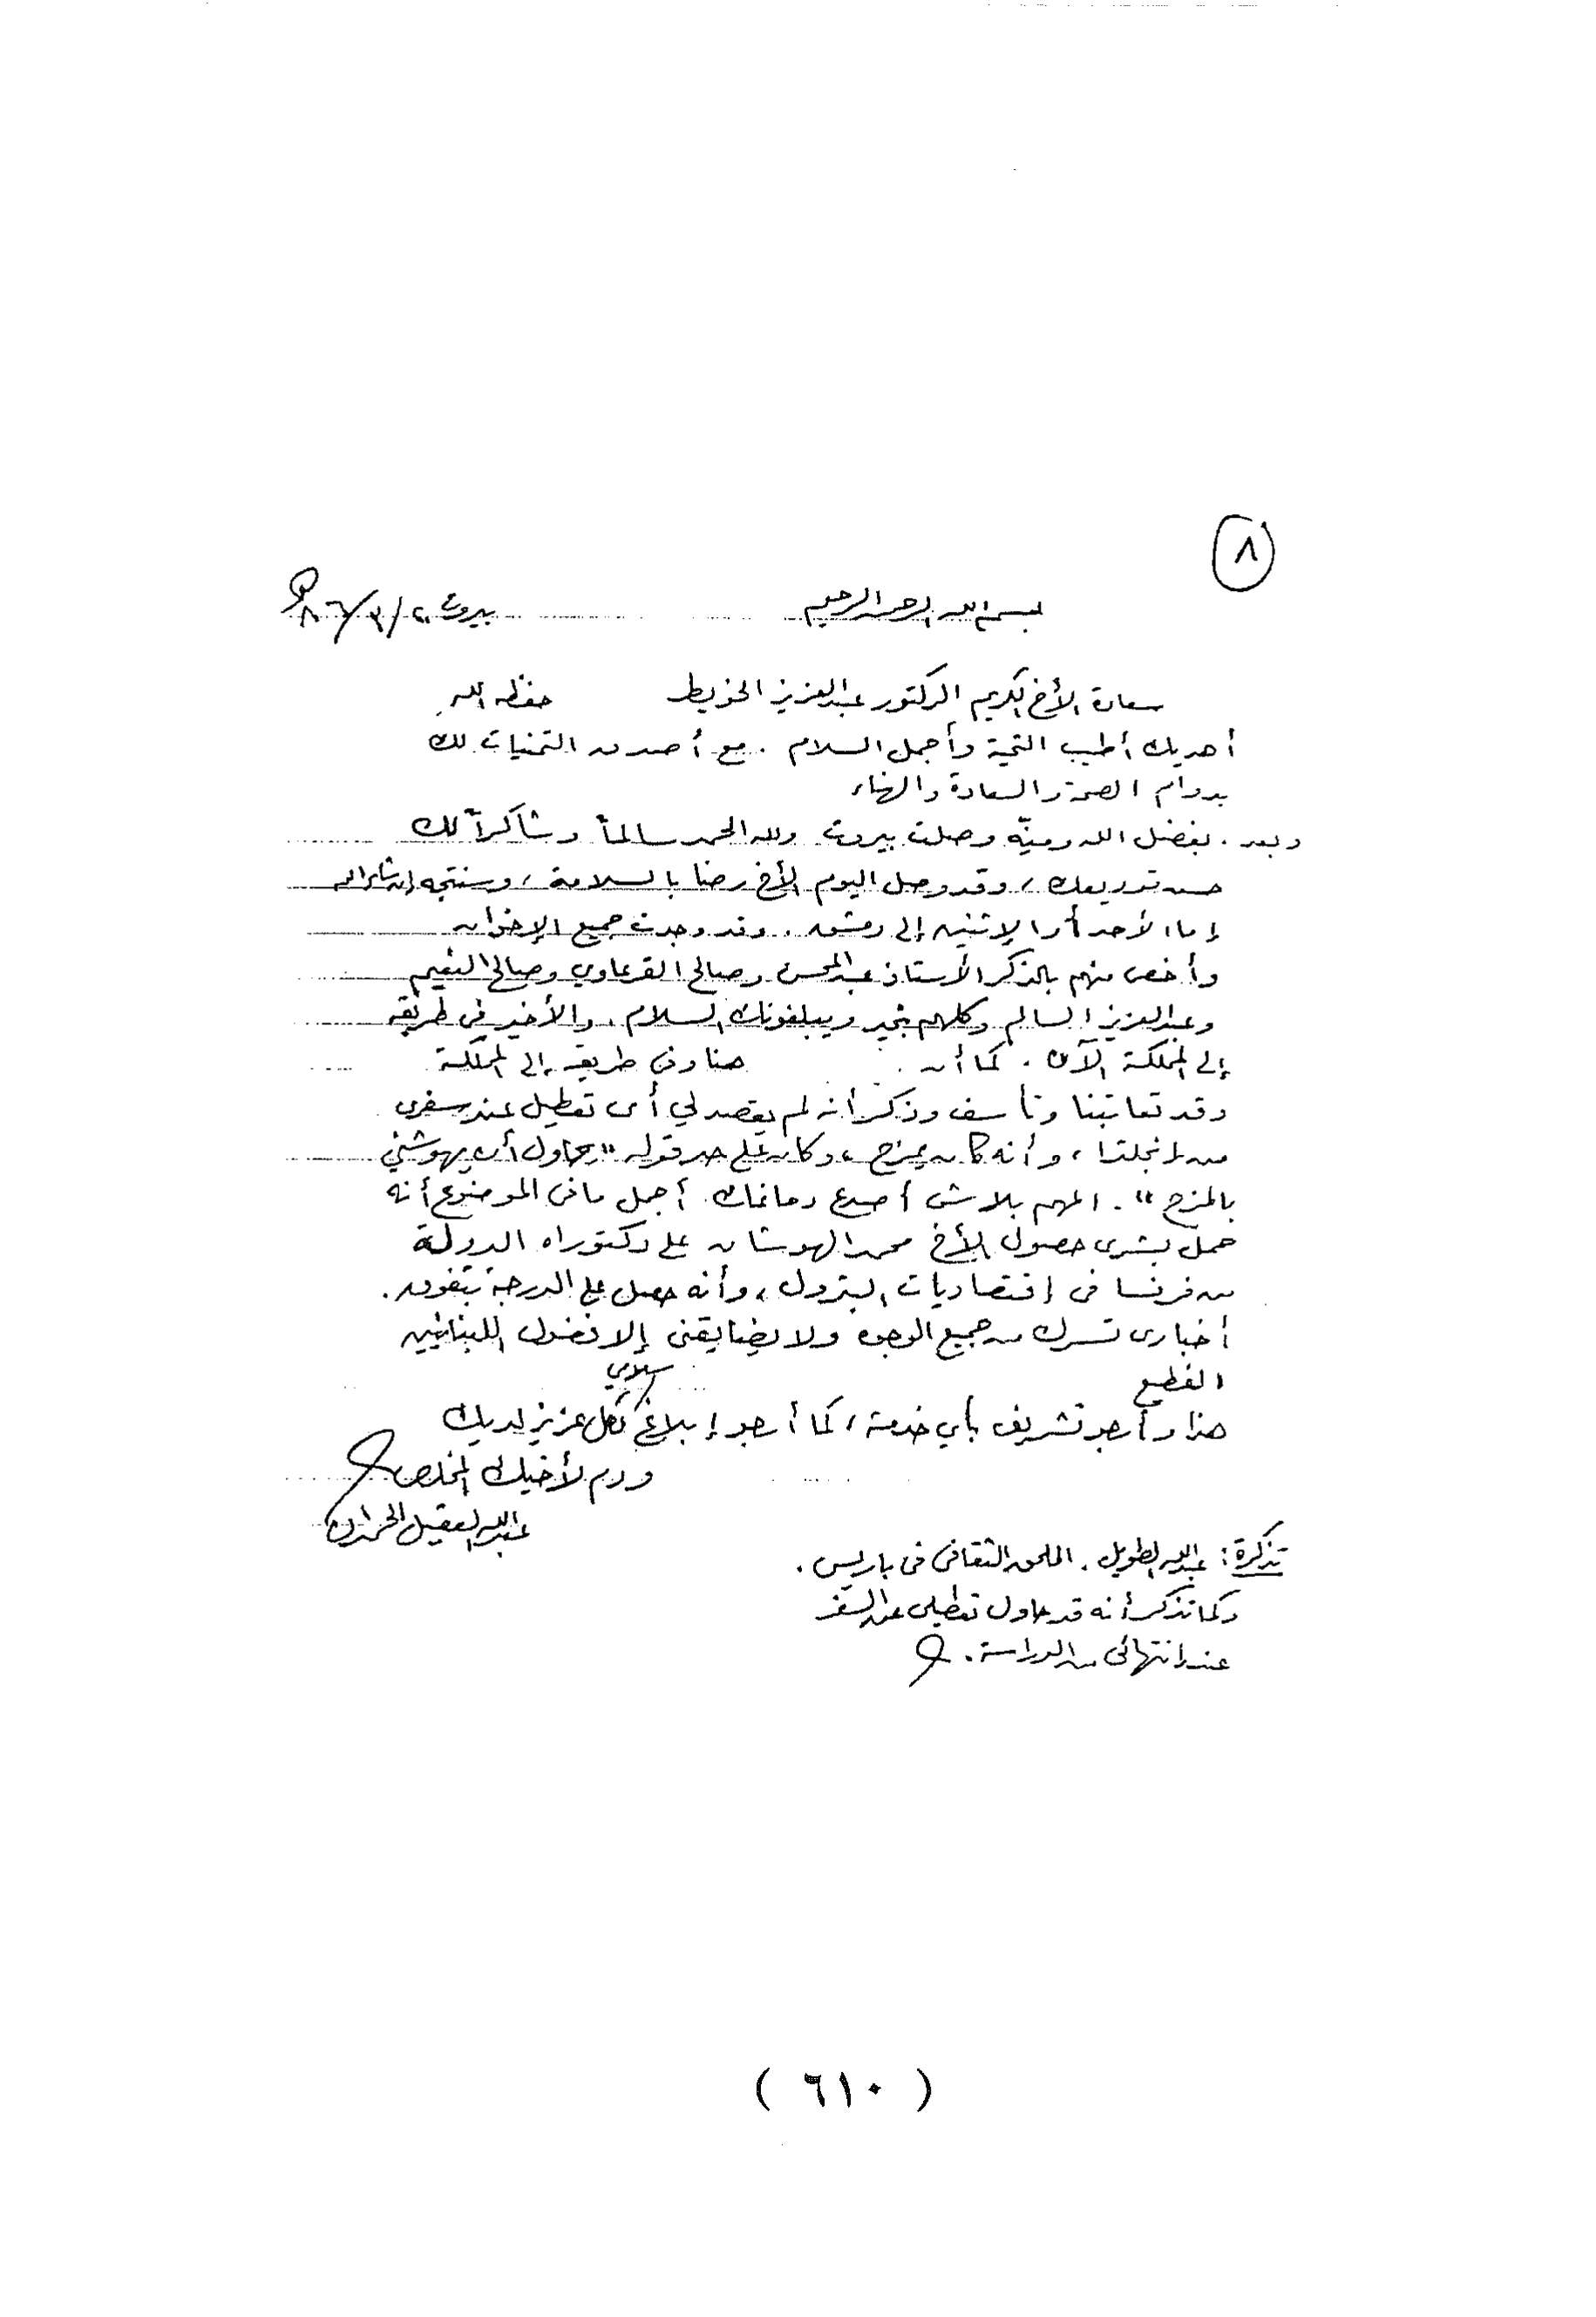 ٨
بسم الله الرحمن الرحيم
بيروت ٢٠/٣/٨٦هـ
سعادة الأخ الكريم الدكتور عبدالعزيز الخويطر حفظه الله
أهديك أطيب التحية وأجمل السلام . مع أصدق التمنيات لك
بدوام الصحة والسعادة والهناء
وبعد . بفضل الله ومنّه وصلت بيروت ولله الحمد سالماً وشاكراً لك
حسن توديعك ، وقد وصل اليوم الأخ رضا بالسلامة ، وسنتجه إن شاء الله
إما الأحد أو الإثنين إلى دمشق . وقد وجدت جميع الإخوان
وأخص منهم بالذكر الأستاذ عبدالمحسن وصالح القرعاوي وصالح النعيم
وعبدالعزيز السالم وكلهم بخير ويبلغونك السلام . والأخير في طريقه
إلى المملكة الآن . كما أن هنا وفى طريقه إلى المملكة
وقد تعاتبنا وتأسف وذكر أنه لم يقصد لي أى تعطيل عند سفرى
من انجلترا ، وأنه كان يمزح ، وكان على حد قوله " يحاول أن يهوشني
بالمزح " . المهم بلاش أصدع دماغك أجمل ما فى الموضوع أنه
حمل بشرى حصول الأخ محمد الهوشان على دكتوراه الدولة
من فرنسا فى إقتصاديات البترول ، وأنه حصل على الدرجة بتفوق .
أخبارى تسرك من جميع الوجوه ولا يضايقنى إلا فضول اللبنانيين
الفظيع
هذا وأرجو تشريفى بأي خدمة ، كما أرجو إبلاغ سلامي لكل عزيز لديك
ودم لأخيك المخلص
عبدالله العقيل الحمدان
تذكرة : عبدالله الطويل . الملحق الثقافى فى باريس .
وكما تذكر أنه قد حاول تعطيلى عن السفر
عند انتهائى من الدراسة .
( ٦١٠ )